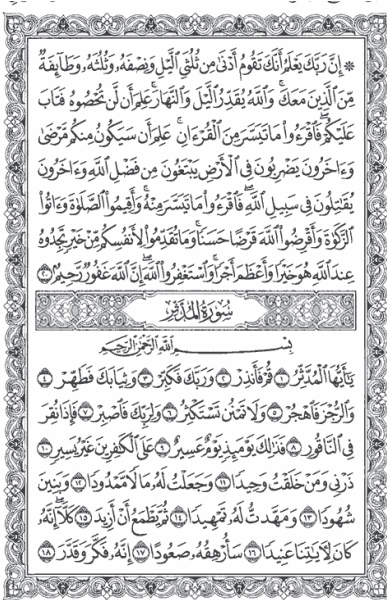 ۞ إِنَّ رَبَّكَ يَعْلَمُ أَنَّكَ تَقُومُ أَدْنَىٰ مِن ثُلُثَيِ ٱلَّيْلِ وَنِصْفَهُۥ وَثُلُثَهُۥ وَطَآئِفَةٌ
مِّنَ ٱلَّذِينَ مَعَكَ ۚ وَٱللَّهُ يُقَدِّرُ ٱلَّيْلَ وَٱلنَّهَارَ ۚ عَلِمَ أَن لَّن تُحْصُوهُ فَتَابَ
عَلَيْكُمْ ۖ فَٱقْرَءُوا۟ مَا تَيَسَّرَ مِنَ ٱلْقُرْءَانِ ۚ عَلِمَ أَن سَيَكُونُ مِنكُم مَّرْضَىٰ
وَءَاخَرُونَ يَضْرِبُونَ فِى ٱلْأَرْضِ يَبْتَغُونَ مِن فَضْلِ ٱللَّهِ ۙ وَءَاخَرُونَ
يُقَٰتِلُونَ فِى سَبِيلِ ٱللَّهِ ۖ فَٱقْرَءُوا۟ مَا تَيَسَّرَ مِنْهُ ۚ وَأَقِيمُوا۟ ٱلصَّلَوٰةَ وَءَاتُوا۟
ٱلزَّكَوٰةَ وَأَقْرِضُوا۟ ٱللَّهَ قَرْضًا حَسَنًا ۚ وَمَا تُقَدِّمُوا۟ لِأَنفُسِكُم مِّنْ خَيْرٍ تَجِدُوهُ
عِندَ ٱللَّهِ هُوَ خَيْرًا وَأَعْظَمَ أَجْرًا ۚ وَٱسْتَغْفِرُوا۟ ٱللَّهَ ۖ إِنَّ ٱللَّهَ غَفُورٌ رَّحِيمٌۢ ٢٠
سُورَةُ المُدَّثِّر
بِسْمِ ٱللَّهِ ٱلرَّحْمَٰنِ ٱلرَّحِيمِ
يَٰٓأَيُّهَا ٱلْمُدَّثِّرُ ١ قُمْ فَأَنذِرْ ٢ وَرَبَّكَ فَكَبِّرْ ٣ وَثِيَابَكَ فَطَهِّرْ ٤
وَٱلرُّجْزَ فَٱهْجُرْ ٥ وَلَا تَمْنُن تَسْتَكْثِرُ ٦ وَلِرَبِّكَ فَٱصْبِرْ ٧ فَإِذَا نُقِرَ
فِى ٱلنَّاقُورِ ٨ فَذَٰلِكَ يَوْمَئِذٍ يَوْمٌ عَسِيرٌ ٩ عَلَى ٱلْكَٰفِرِينَ غَيْرُ يَسِيرٍ ١٠
ذَرْنِى وَمَنْ خَلَقْتُ وَحِيدًا ١١ وَجَعَلْتُ لَهُۥ مَالًا مَّمْدُودًا ١٢ وَبَنِينَ
شُهُودًا ١٣ وَمَهَّدتُّ لَهُۥ تَمْهِيدًا ١٤ ثُمَّ يَطْمَعُ أَنْ أَزِيدَ ١٥ كَلَّآ ۖ إِنَّهُۥ
كَانَ لِـَٔايَٰتِنَا عَنِيدًا ١٦ سَأُرْهِقُهُۥ صَعُودًا ١٧ إِنَّهُۥ فَكَّرَ وَقَدَّرَ ١٨